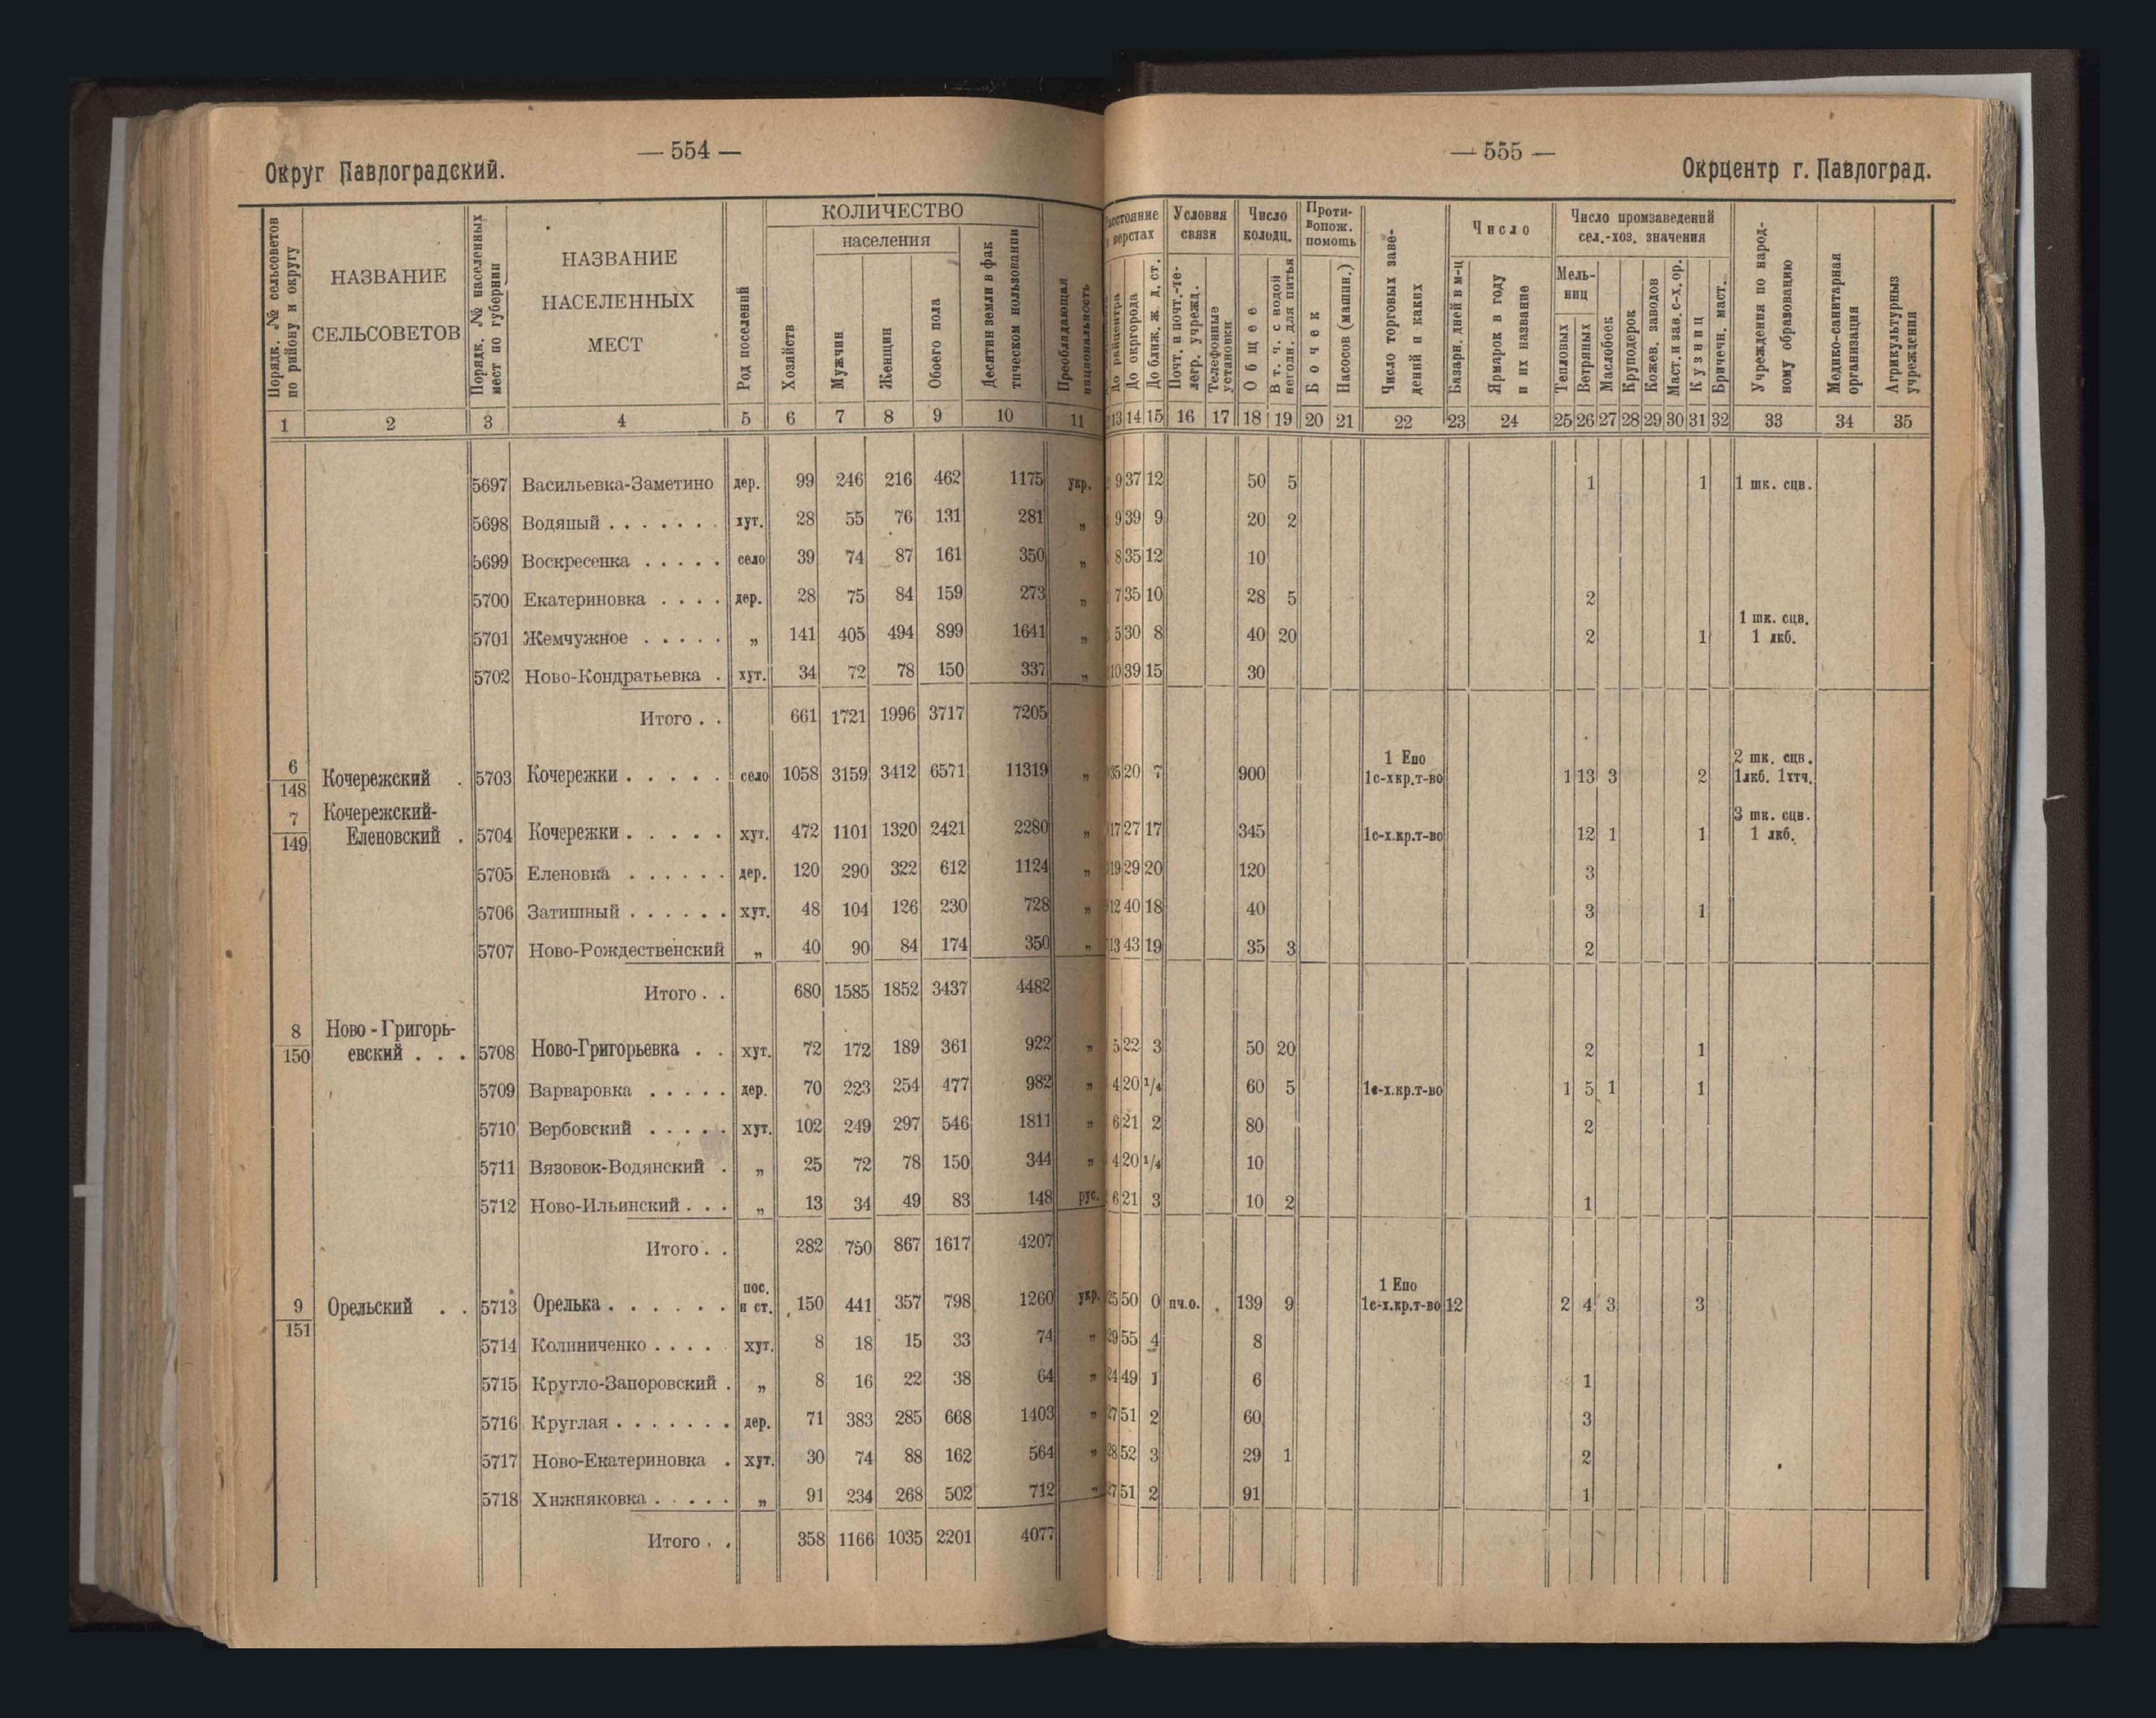 — 554 —
Округ Павлоградский.
Порядк. № сельсоветов по рийону и округу
НАЗВАНИЕ СЕЛЬСОВЕТОВ
Порядк. № населенных мест по губернии
НАЗВАНИЕ НАСЕЛЕННЫХ МЕСТ
Род поселений
КОЛИЧЕСТВО
Хозяйств
населения
Мужчин
Женщин
Обоего пола
Десятин земли в фактическом пользовании
Преобладающая национальность
1 2 3 4 5 6 7 8 9 10 11
5697 Васильевка-Заметино дер. 99 246 216 462 1175 укр.
5698 Водяный . . . . . . . хут. 28 55 76 131 281 „
5699 Воскресенка . . . . . село 39 74 87 161 350 „
5700 Екатериновка . . . . дер. 28 75 84 159 273 „
5701 Жемчужное . . . . . „ 141 405 494 899 1641 „
5702 Ново-Кондратьевка . хут. 34 72 78 150 337 „
Итого . . 661 1721 1996 3717 7205
6/148 Кочережский . 5703 Кочережки . . . . . село 1058 3159 3412 6571 11319 „
7/149 Кочережский-
Еленовский . 5704 Кочережки . . . . . хут. 472 1101 1320 2421 2280 „
5705 Еленовка . . . . . . дер. 120 290 322 612 1124 „
5706 Затишный . . . . . . хут. 48 104 126 230 728 „
5707 Ново-Рождественский „ 40 90 84 174 350 „
Итого . . 680 1585 1852 3437 4482
8/150 Ново - Григорь-
евский . . . 5708 Ново-Григорьевка . . хут. 72 172 189 361 922 „
5709 Варваровка . . . . . дер. 70 223 254 477 982 „
5710 Вербовский . . . . . хут. 102 249 297 546 1811 „
5711 Вязовок-Водянский . „ 25 72 78 150 344 „
5712 Ново-Ильинский . . . „ 13 34 49 83 148 рус.
Итого . . 282 750 867 1617 4207
9/151 Орельский . . 5713 Орелька . . . . . . пос. и ст. 150 441 357 798 1260 укр.
5714 Колиниченко . . . . хут. 8 18 15 33 74 „
5715 Кругло-Запоровский . „ 8 16 22 38 64 „
5716 Круглая . . . . . . . дер. 71 383 285 668 1403 „
5717 Ново-Екатериновка . хут. 30 74 88 162 564 „
5718 Хижняковка . . . . . „ 91 234 268 502 712 „
Итого . . 358 1166 1035 2201 4077
— 555 —
Окрцентр г. Павлоград.
верстах
До райцентра
До окргорода
До ближ. ж. д. ст.
Условия связи
Почт. и почт.-телегр. учрежд.
Телефонные установки
Число колодц.
Общее
В т. ч. с водой негодн. для питья
Противопож. помощь
Бочек
Насосов (машин.)
Число торговых заведений и каких
Число
Базарн. дней в м-ц
Ярмарок в году и их название
Число промзаведений сел.-хоз. значения
Мельниц
Тепловых
Ветряных
Маслобоек
Круподерок
Кожев. заводов
Маст. и зав. с-х. ор.
Кузниц
Бричечн. маст.
Учреждения по народному образованию
Медико-санитарная организация
Агрикультурныз учреждения
13 14 15 16 17 18 19 20 21 22 23 24 25 26 27 28 29 30 31 32 33 34 35
9 37 12 50 5 1 1 1 шк. сцв.
9 39 9 20 2
8 35 12 10
7 35 10 28 5 2
5 30 8 40 20 2 1 1 шк. сцв. 1 лкб.
10 39 15 30
35 20 7 900 1 Епо 1с-хкр.т-во 1 13 3 2 2 шк. сцв. 1лкб. 1хтч.
17 27 17 345 1с-х.кр.т-во 12 1 1 3 шк. сцв. 1 лкб.
19 29 20 120 3
12 40 18 40 3 1
13 43 19 35 3 2
5 22 3 50 20 2 1
4 20 1/4 60 5 1с-х.кр.т-во 1 5 1 1
6 21 2 80 2
4 20 1/4 10
6 21 3 10 2 1
25 50 0 пч.о. 139 9 1 Епо 1с-х.кр.т-во 12 2 4 3 3
29 55 4 8
24 49 1 6 1
27 51 2 60 3
28 52 3 29 1 2
27 51 2 91 1